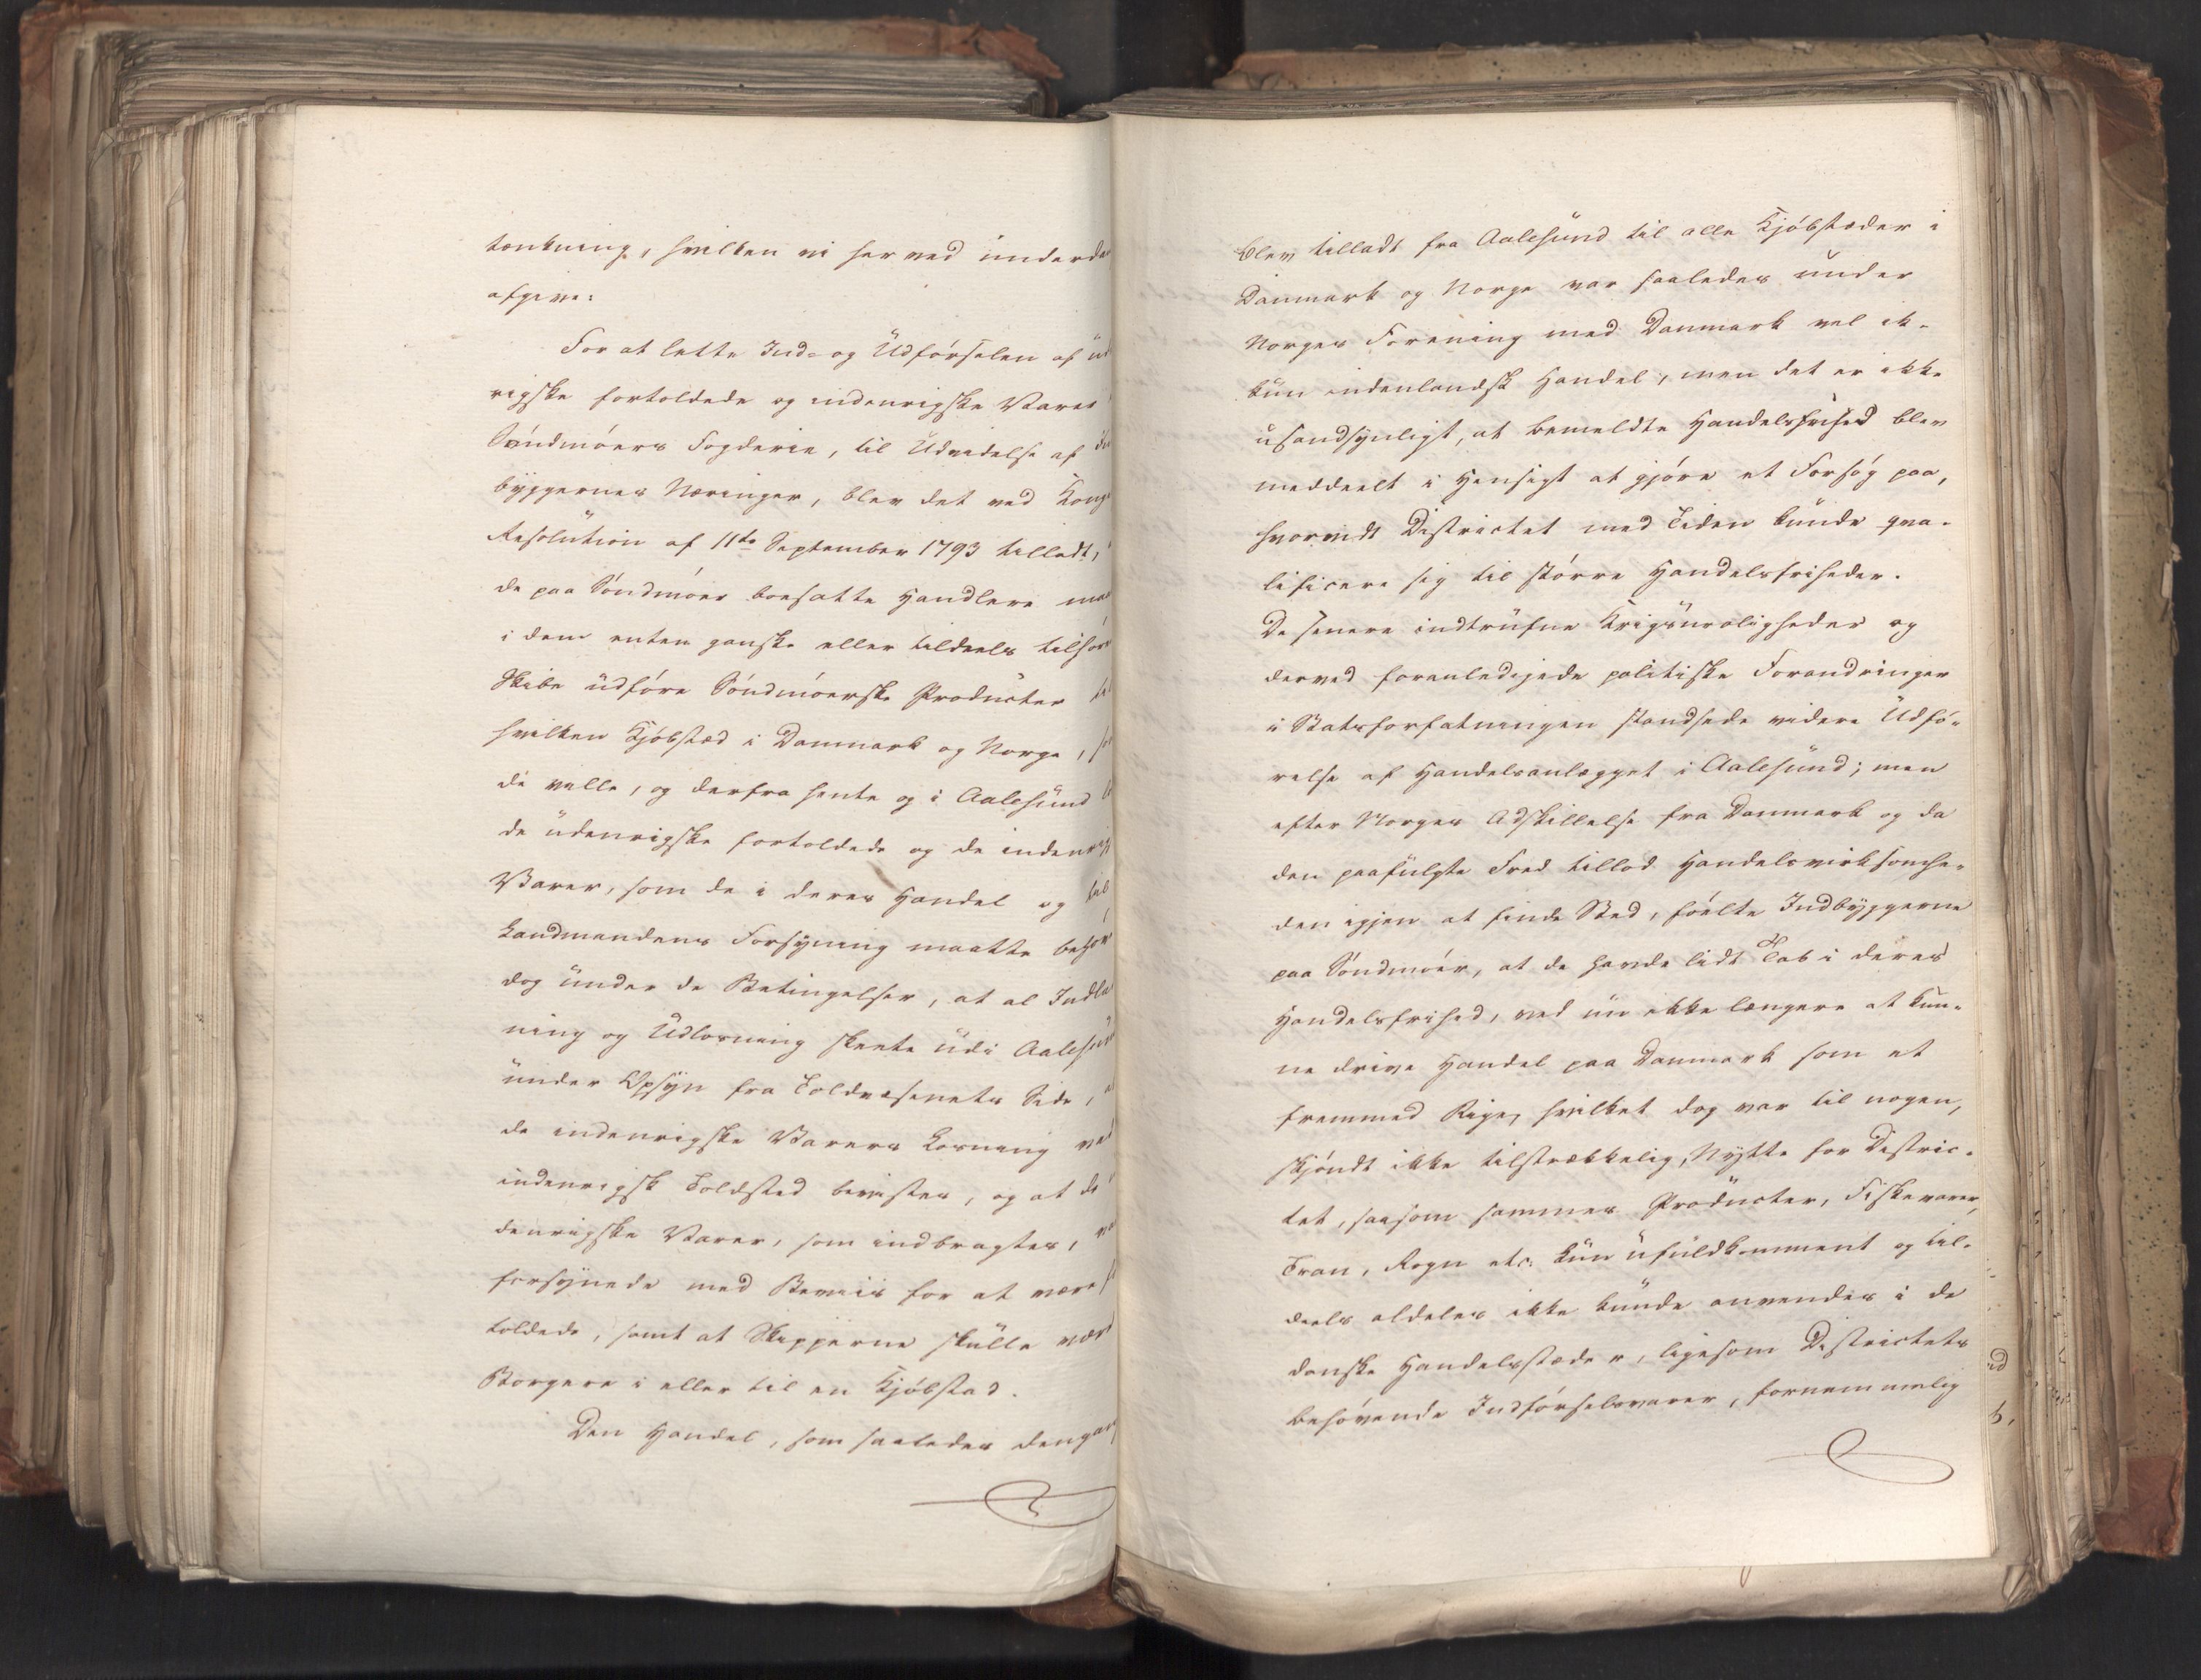 tænkning, hvilken vi herved underda
afgive:
For at lette Ind- og Udførselen af ud
rigske fortoldede og indenrigske Varer
Søndmøers Fogderie, til Udvidelse af
byggernes Næringer, blev det ved Konge
Resolution af 11te September 1793 tilladt,
de paa Søndmøer boesatte Handlere med
i dem enten ganske eller tildeels tilhør
Skibe udføre Søndmøerske Producter til
hvilken Kjøbstæd i Danmark og Norge,
de ville, og derfra hente og i Aalesund
de udenrigske fortoldede og de indenrig
Varer, som de i deres Handel og til
Landmandens Forsyning maatte behøv
dog under de Betingelser, at al Indlad
ning og Udlosning skeete udi Aalesun
under Opsyn fra Toldvæsenets Side,
de indenrigske Varers Losning ved
indenrigsk Toldsted beviistes, og at de
denrigske Varer, som indbragtes,
forsynede med Beviis for at være
toldede, samt at Skipperne skulle være
Borgere i eller til en Kjøbstad.
Den Handel, som saaledes dengang
blev tilladt fra Aalesund til alle Kjøbstæder i
Danmark og Norge var saaledes under
Norges Forening med Danmark vel ik-
kun indenlandsk Handel, men det er ikke
usandsynligt, at bemeldte Handelsfrihed blev
meddeelt i Hensigt at gjøre et Forsøg paa,
hvorvidt Districtet med Tiden kunde qva-
lificere sig til større Handelsfriheder.
De senere indtrufne Krigsuroligheder og
derved foranledigede politiske Forandringer
i Statsforfatningen standsede videre Udfø-
relse af Handelsanlægget i Aalesund; men
efter Norges Adskillelse fra Danmark og da
den paafulgte Fred tillod Handelsvirksomhe-
den igjen at finde Sted, følte Indbyggerne
paa Søndmøer, at de havde lidt Tab i deres
Handelsfrihed, ved nu ikke længere at kun-
ne drive Handel paa Danmark som et
fremmed Rige, hvilket dog var til nogen,
skjøndt ikke tilstrækkelig, Nytte for Distric-
tet, saasom sammes Producter, Fiskevarer,
Tran, Rogn etc. kun ufuldkomment og til-
deels aldeles ikke kunde anvendes i de
danske Handelsstæder, ligesom Districtets
behøvende Indførselsvarer, fornemmelig